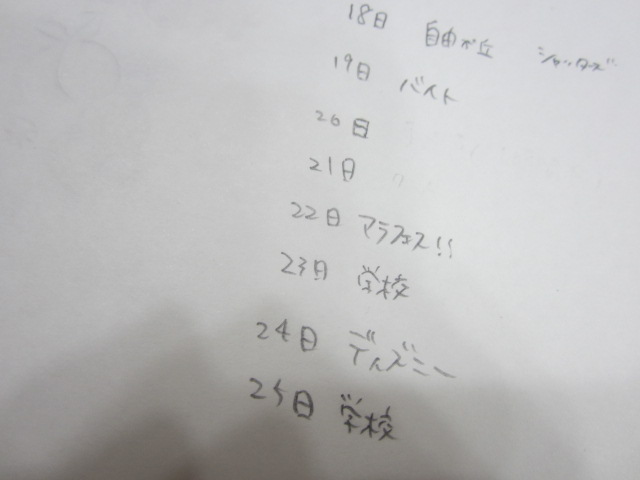 18日 自由が丘 シャッターズ
19日 バイト
20日
21日
22日 アラフェス!!
23日 学校
24日 ディズニー
25日 学校